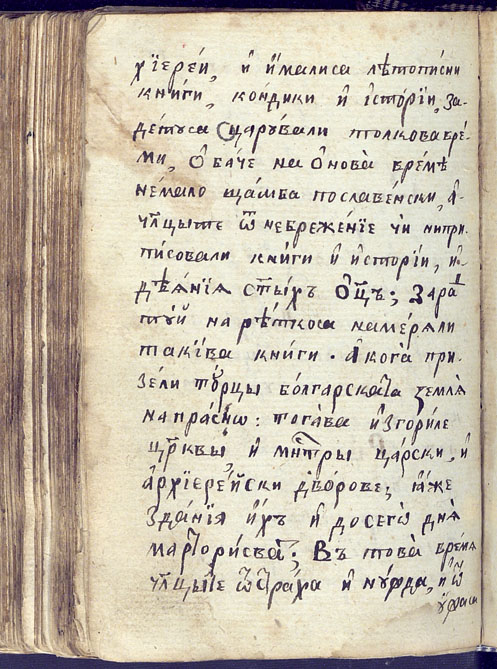 хїереи, и ималиса лѣтописни
книги, кондики и історїи, за-
детуса царували толковавре-
ми, Ѡбаче на Ѡнова времѣ
немало щамба пославенски, а҆
чл҃цыте ѿ небреженїе чи нипри-
писовали книги и исторїи, и
дѣянїя ст҃ыхъ Ѻц҃ъ; Зара
туй на рѣткоса намеряли
такива книги. А кога при-
зели турцы болгарската земля
напрасно: тогава изгориле
цр҃квы, и мнⷭ҇тры царски, и
архїерейски дворове; іаже
зданїя ихъ и до сегѡ дня
марторисва; Въ това время
чл҃цыте ѿ страха и нужда, и ѿ